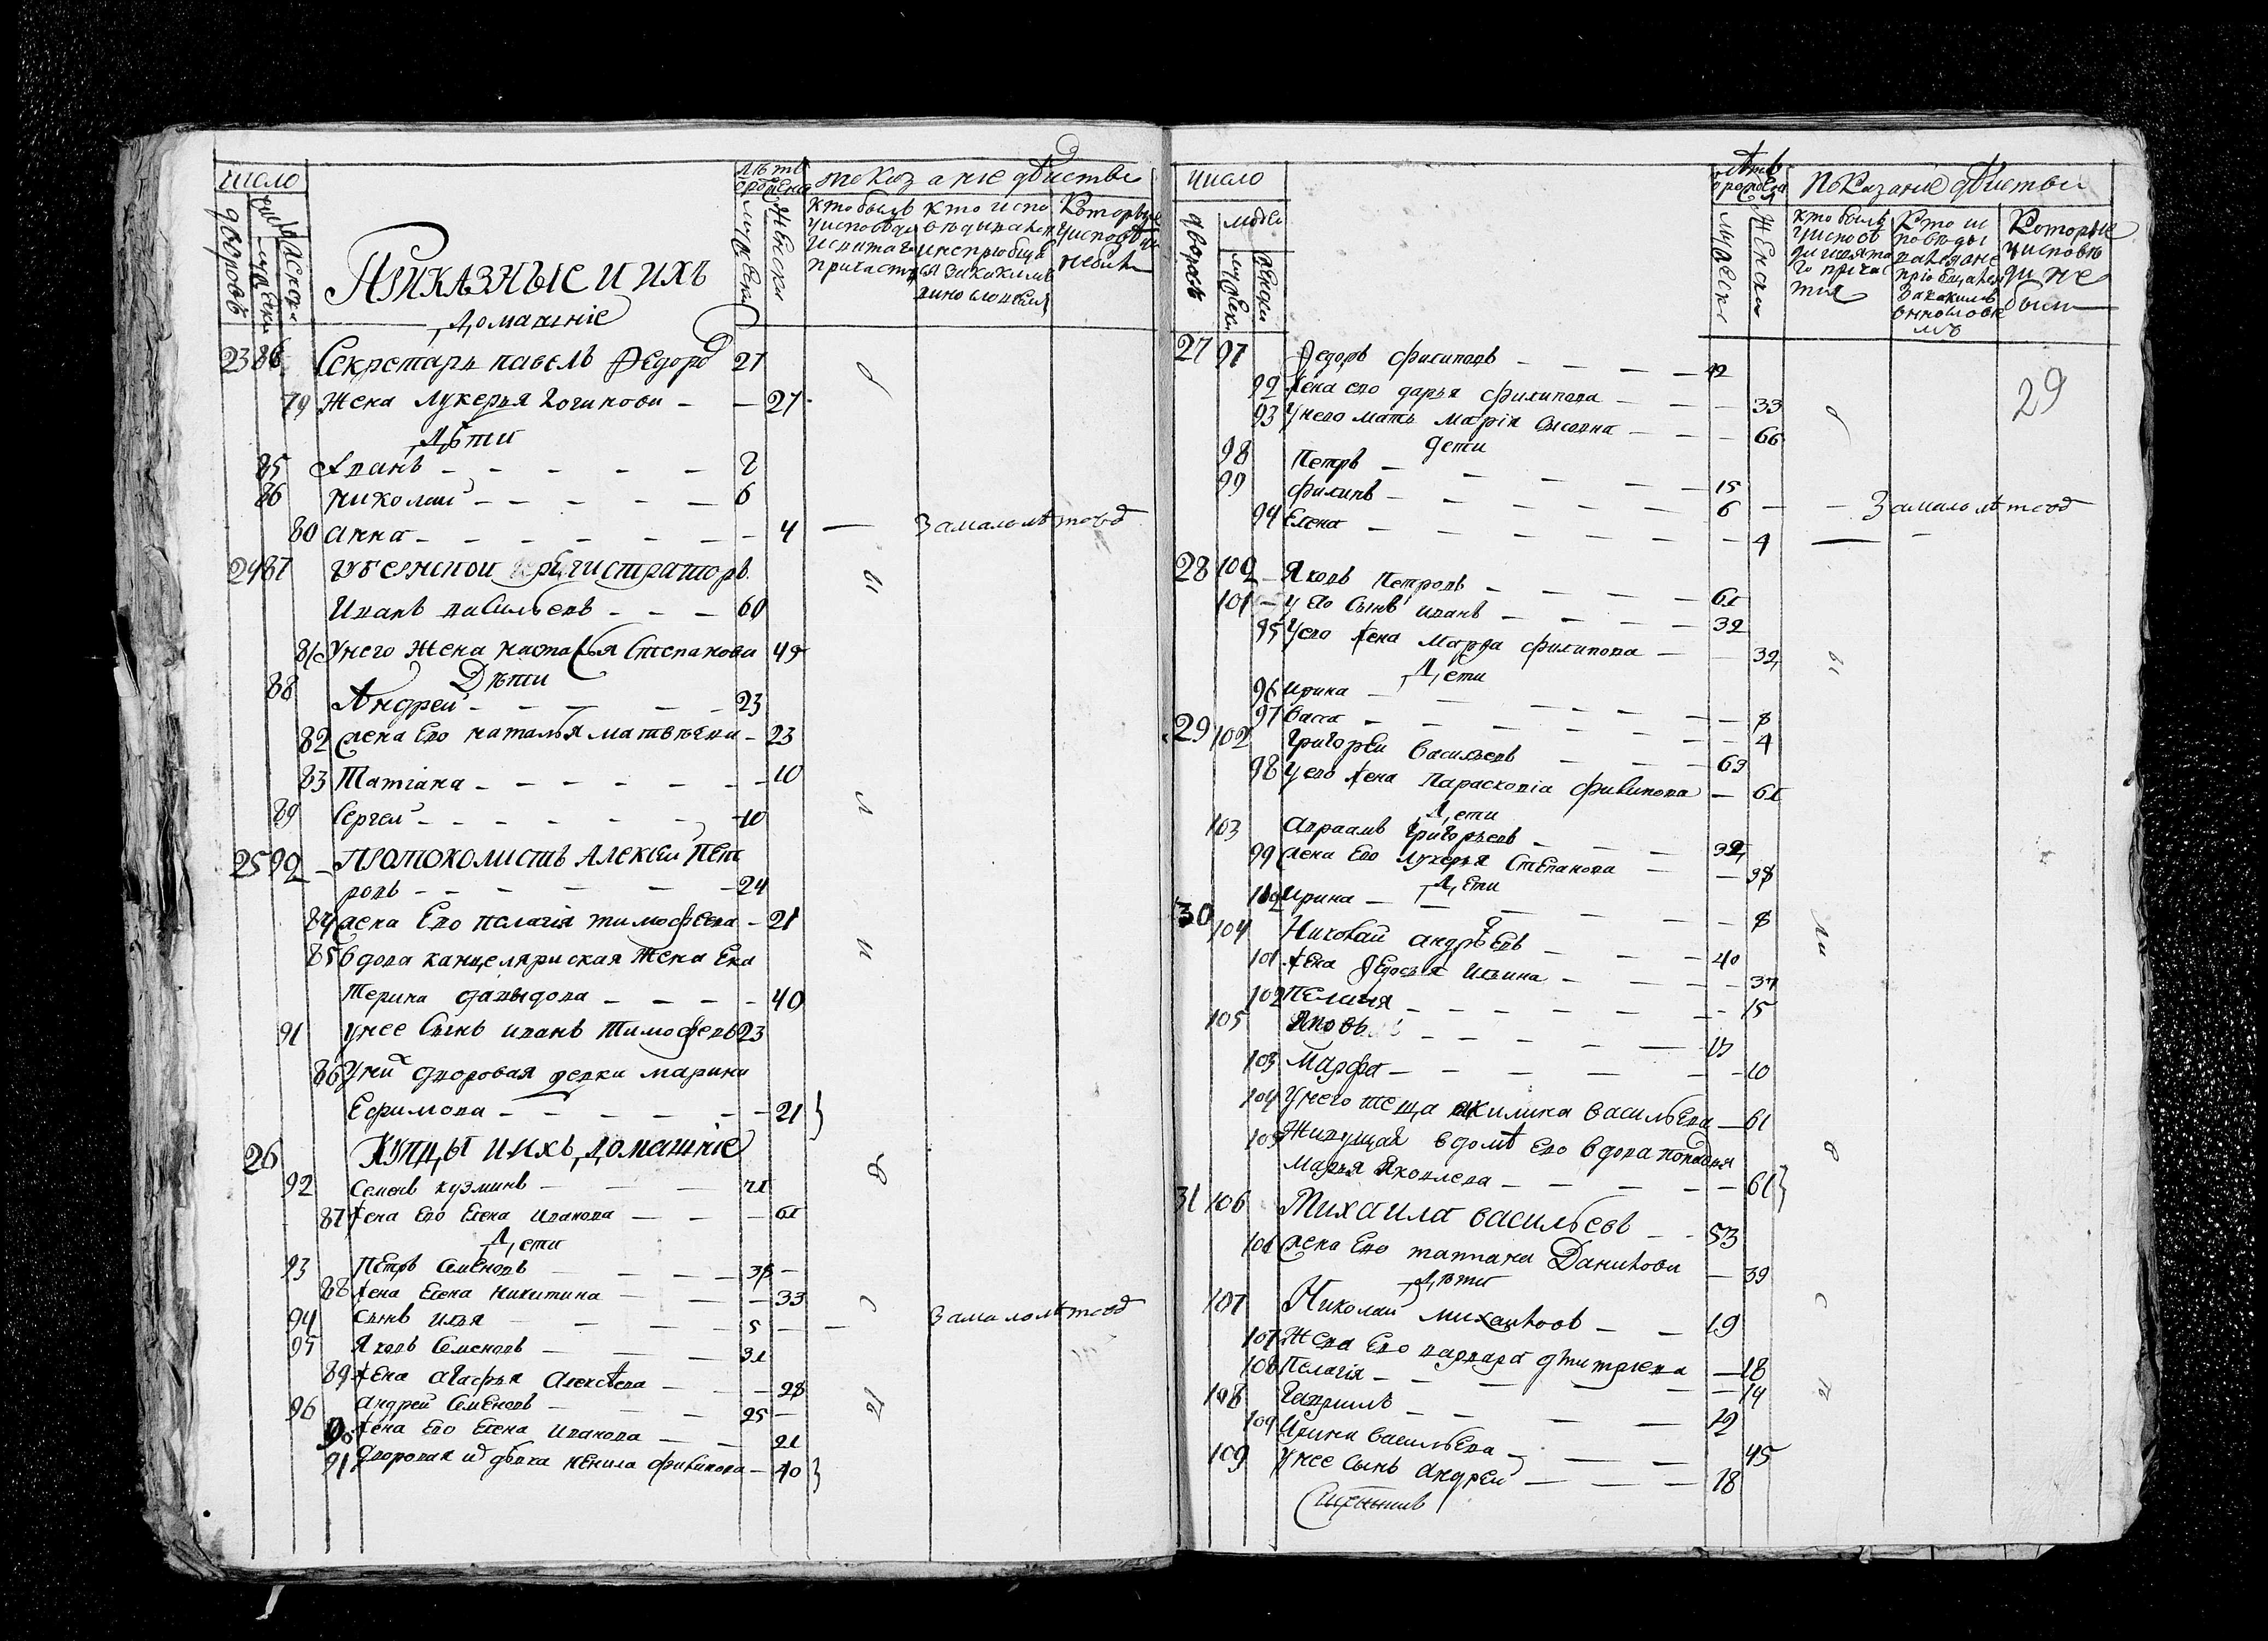 число
дворовъ
людей
мужеска
женска
Приказные и ихъ
домашнiе
лѣтъ
от рождения
мужеска
женски
показанiе дѣйства
кто былъ
у исповеди
и святаго
причастия
кто испо
ведывался
и непрiобща
за какимъ
винословiем
Которые
у исповеди
небыли
23 86 Секретарь павелъ Федоровъ 27
79 Жена лукерья Логинова - - 27
Дѣти
85 Иванъ - - - - - 8
86 Николай - - - - - 6
80 анна - - - - - - - 4 — За малолѣтствомъ
24 87 губернской регистраторъ
Иванъ васильевъ - - - 60
81 Унего Жена настасья Степанова 49
Дѣти
88 Андрей - - - - - 23
82 жена Его наталья матвѣева - 23
83 Татiана - - - - - - - 10
89 Сергей - - - - - - - 10
25 90 - Протоколистъ Алексѣй Пет
ровъ - - - - - - 24
84 жена Его пелагiя тимофеева - 21
85 вдова канцеляриская Жена Ека
терина давыдова - - - - 40
91 Унее Сынъ иванъ Тимофеевъ 23
86 Уний дворовая девка марина
Ефимова - - - - - - 21
26 Купцы и ихъ домашнiе
92 Семенъ кузминъ - - - 71
87 жена Его Елена Иванова - - - 61
Дети
93 Петръ Семеновъ - - - - 38 -
88 жена Елена Никитина - - - 33
94 Сынъ илья - - - - 5 - - За малолѣтствомъ
95 Яковъ Семеновъ - - - 31
89 жена агафья Алексѣева - - - 28
96 андрей Семеновъ - - - 25 -
90 жена Его Елена Иванова - - 21
91 Дворовая их дѣвка Ненила филипова - 40
число
дворовъ
людей
мужеска
женски
лѣтъ
от рожденiя
мужеска
женски
Показанiе дѣйства
кто былъ
у испов
ди и свята
го прича
стия
Кто ис
поведы
вался а не
прiобщался
за какимъ
винослове
мъ
Которые
у исповѣ
ди не
были
29
27 97 Федоръ филиповъ - - - - 42
92 Жена его дарья филипова - - - 33
93 Унего мать Марiя Сысоевна - - - 66
дети
98 Петръ - - - - - 15
99 филипъ - - - - - 6 - - За малолѣтствомъ
94 Елена - - - - - - 4
28 100 - Яковъ Петровъ - - - - 61
101 - У его Сынъ иванъ - - - - 32
95 Уего жена Марфа филипова - - 32
Дети
96 ирина - - - - - - 8
97 васса - - - - - - 4
29 102 Григорей Васильевъ - - - 63
98 У его жена Парасковiа филипова - 61
Дети
103 авраамъ Григорьевъ - - - 32
99 жена Его лукерья Степанова - - 38
Дети
100 ирина - - - - - - 8
30 104 Николай андрѣевъ - - - 40
101 жена Федосья Ильина - - - 37
102 Пелагия - - - - - - 15
105 Яковъ - - - - - 13
103 Марфа - - - - - - 10
104 Унего теща акилина васильева - 61
105 Живущая в домѣ Его вдова попадья
Марья Яковлева - - - - - 61
31 106 Михаила васильевъ - - 53
106 жена Его татиана Данилова - 39
Дѣти
107 Николай михаиловъ - - 19
107 Жена Его варвара дмитриева - 18
108 Пелагiя - - - - - - 14
108 Гаврилъ - - - - 12
109 Ирина васильева - - - 45
109 Унее Сынъ андрей - - - 18